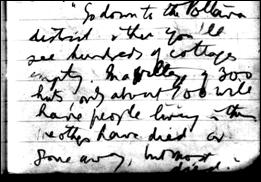 "Go down to the Poltava
district & there you'll
see hundreds of cottages
empty. In a village of 300
huts only about 100 will
have people living in them
the others have died or
gone away, but most
died.